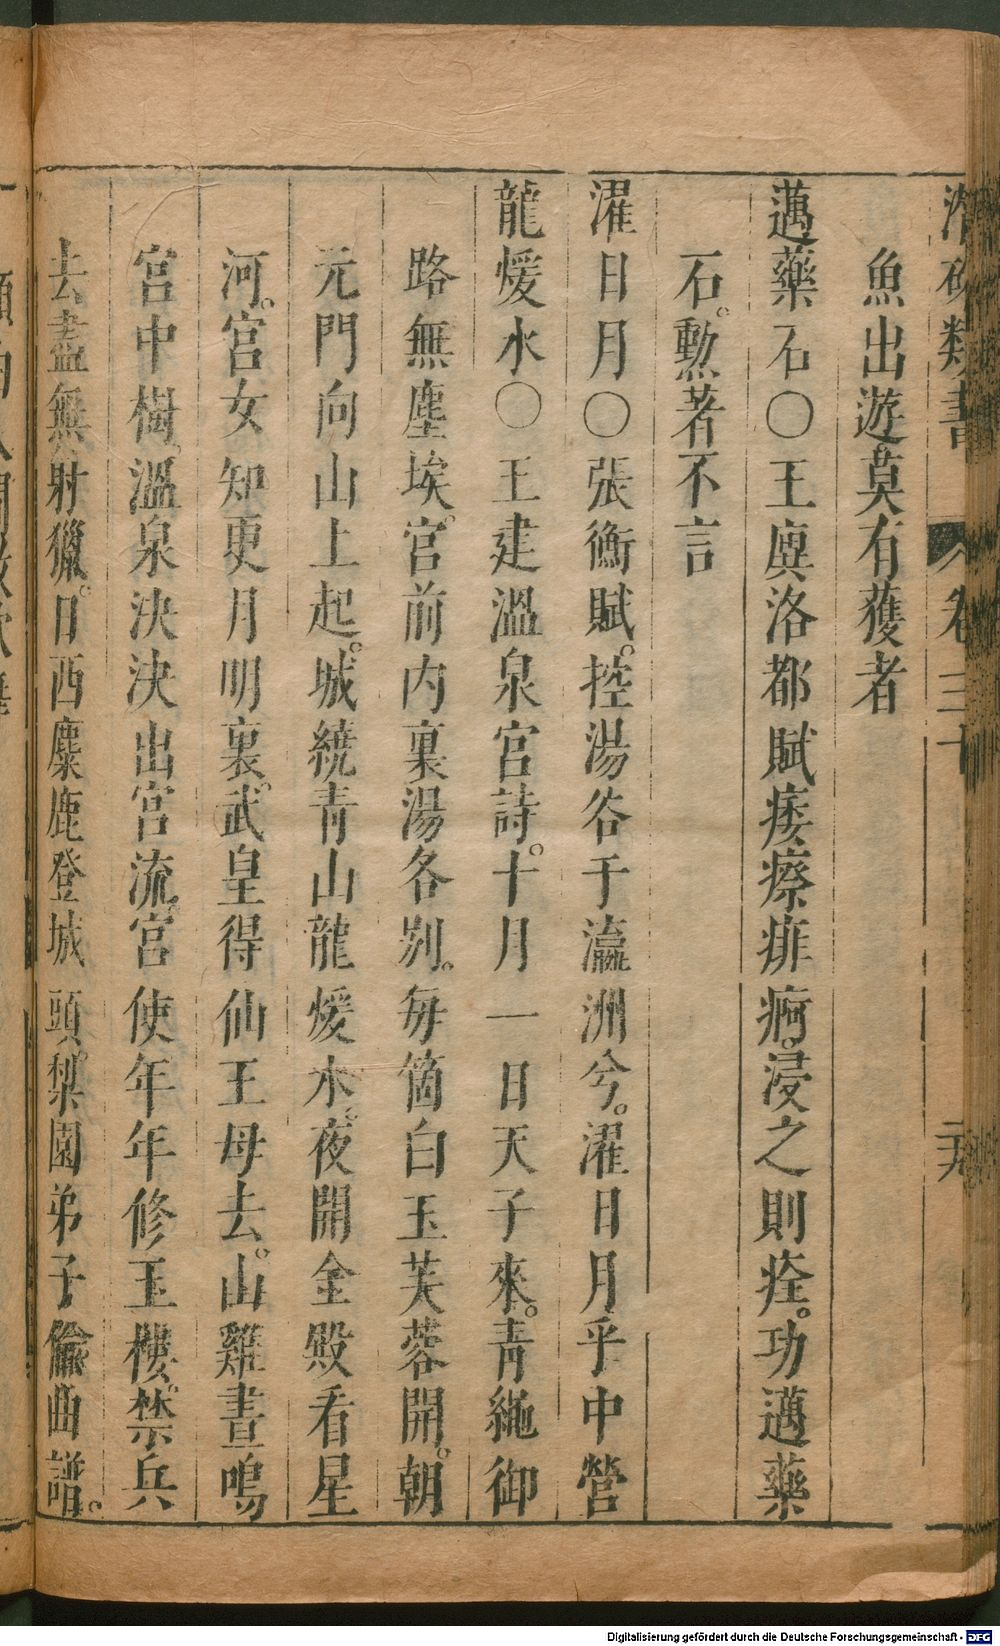 潛確類書 卷三十 二九
魚出遊莫有獲者
邁藥石〇王廙洛都賦痿瘵痱痾。浸之則痊。功邁藥
石。勲著不言
濯日月〇張衡賦。控湯谷于瀛洲兮。濯日月乎中營
龍煖水〇王建溫泉宮詩。十月一日天子來。青繩御
路無塵埃。宮前内裏湯各別。毎箇白玉芙蓉開。朝
元門向山上起。城繞青山龍煖水。夜開金殿看星
河。宮女知更月明裏。武皇得仙王母去。山雞晝鳴
宮中樹。溫泉決決出宮流。宮使年年修玉樓。禁兵
去盡無射獵。日西麋鹿登城頭。梨園弟子偷曲譜。
Digitalisierung gefördert durch die Deutsche Forschungsgemeinschaft - DFG